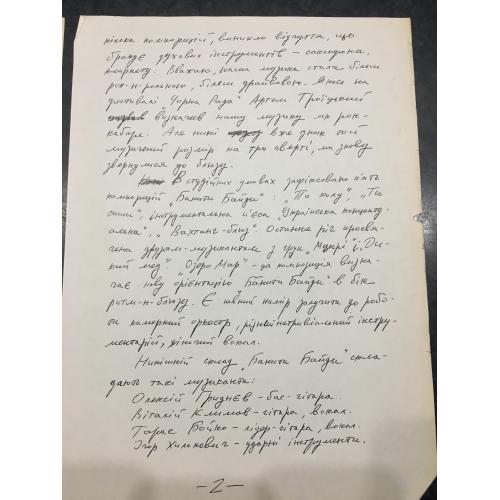 кілька композицій, виникло відчуття, що
бракує духових інструментів – саксофона,
кларнету. Вважаю, наша музика стала більш
рок-н-рольною, більш драйвовою. Якось на
фестивалі „Чорна Рада" Артем Троїцький
визначив нашу музику як рок-
кабаре. Але нині вже зник той
музичний розмір на три чверті, ми знову
звернулися до блюзу.
В студійних умовах зафіксовано п'ять
композицій „Бакити Байди": „По колу", „Ти
", інструментальна п'єса „Українська концепту-
альна", „Вахтанг-блюз". Остання річ присвя-
чена друзям-музикантам з груп „Мцирі" і „Ди-
кий мед". „Озеро Мар" – ця композиція визна-
чає нову орієнтацію „Бакити Байди" в бік
ритм-н-блюзу. Є намір залучити до робо-
ти камерний оркестр, різний нетривіальний інстру-
ментарій, жіночий вокал.
Нинішній склад „Бакити Байди" скла-
дають такі музиканти:
Олексій Гриднєв – бас-гітара.
Віталій Климов – гітара, вокал.
Тарас Бойко – лідер-гітара, вокал.
Ігор Химкевич – ударні інструменти.
–2–